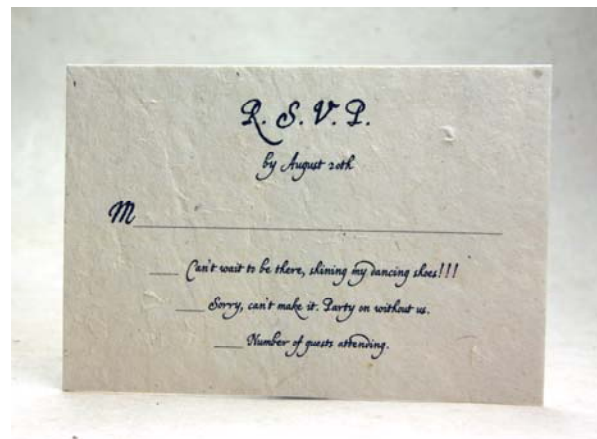 R. S. V. P.
by August 20th
M
Can't wait to be there, shining my dancing shoes!!!
Sorry, can't make it. Party on without us.
Number of guests attending.